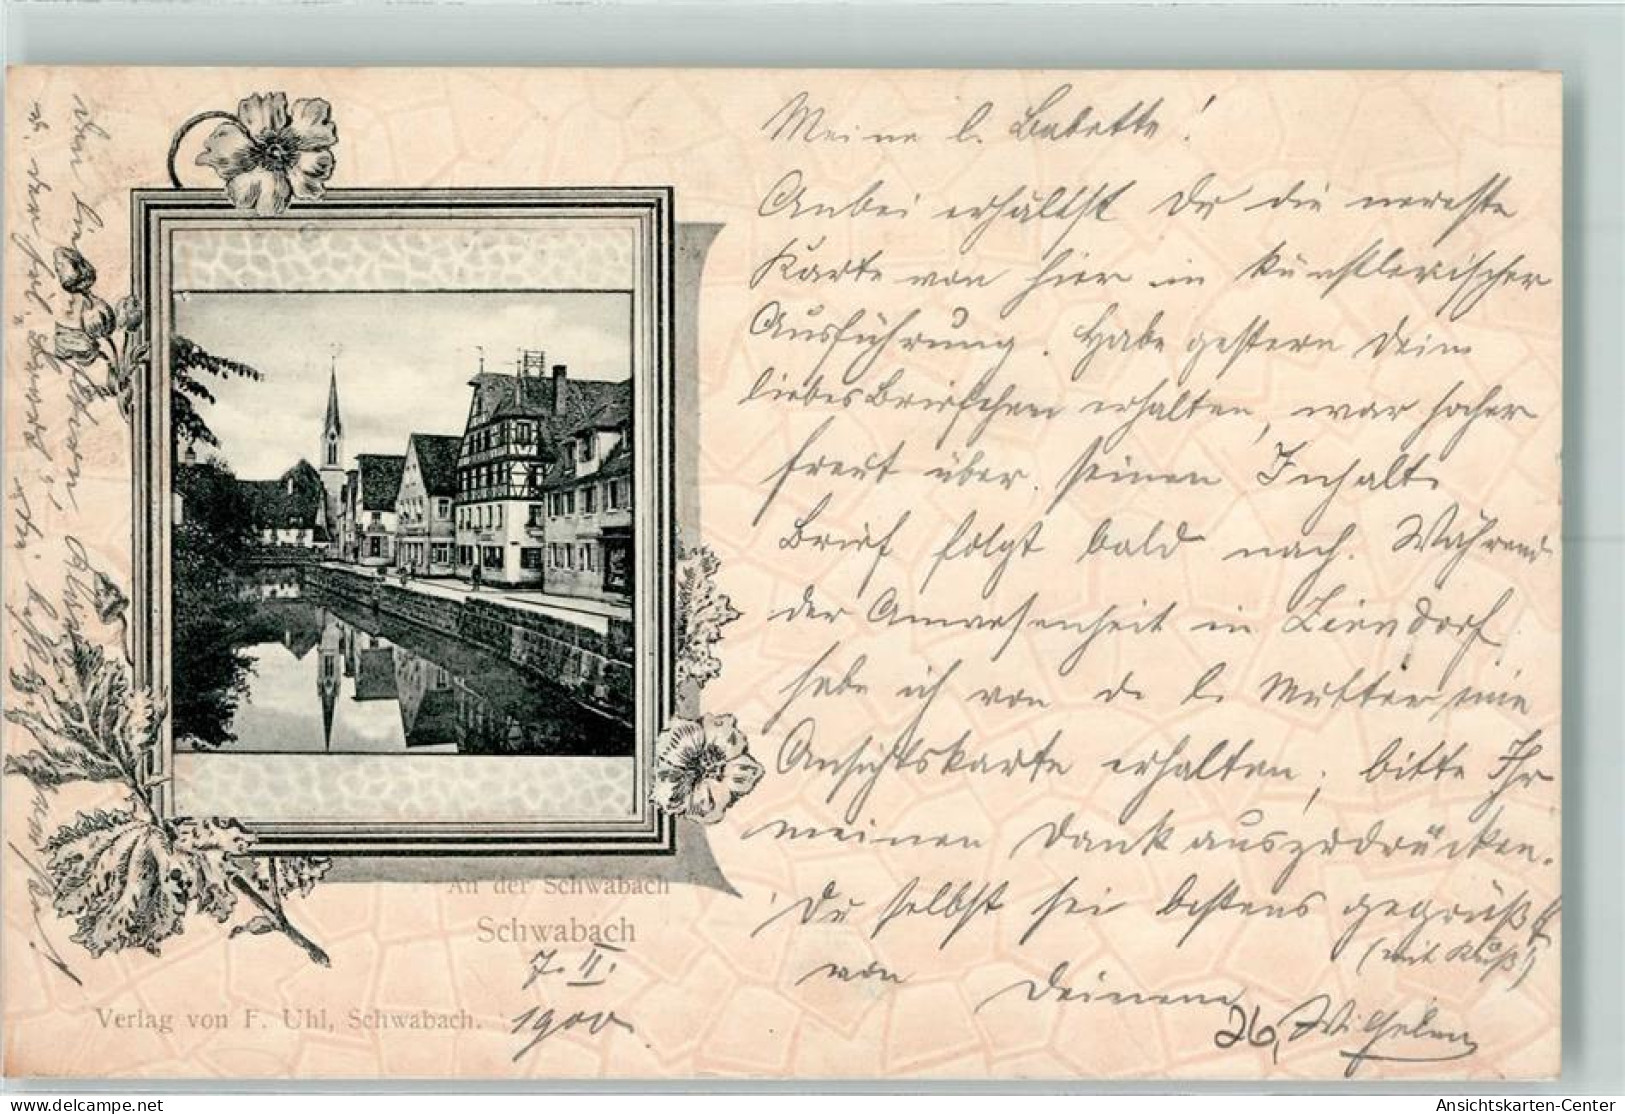 Meine l. Babette!
Anbei erhältst Du die neueste
Karte von hier in künstlerischer
Ausführung. Habe gestern Dein
liebes Briefchen erhalten, war
freut über seinen Inhalt.
Brief folgt bald nach. Während
der Anwesenheit in Zirndorf
habe ich von d. l. Mutter eine
Ansichtskarte erhalten; bitte Ihr
meinen Dank auszudrücken.
Du selbst sei bestens gegrüßt
(mit Kuß!)
von Deinem
Wilhelm
26,
An der Schwabach
Schwabach
7. II.
1900
Verlag von F. Uhl, Schwabach.
Ansichtskarten-Center